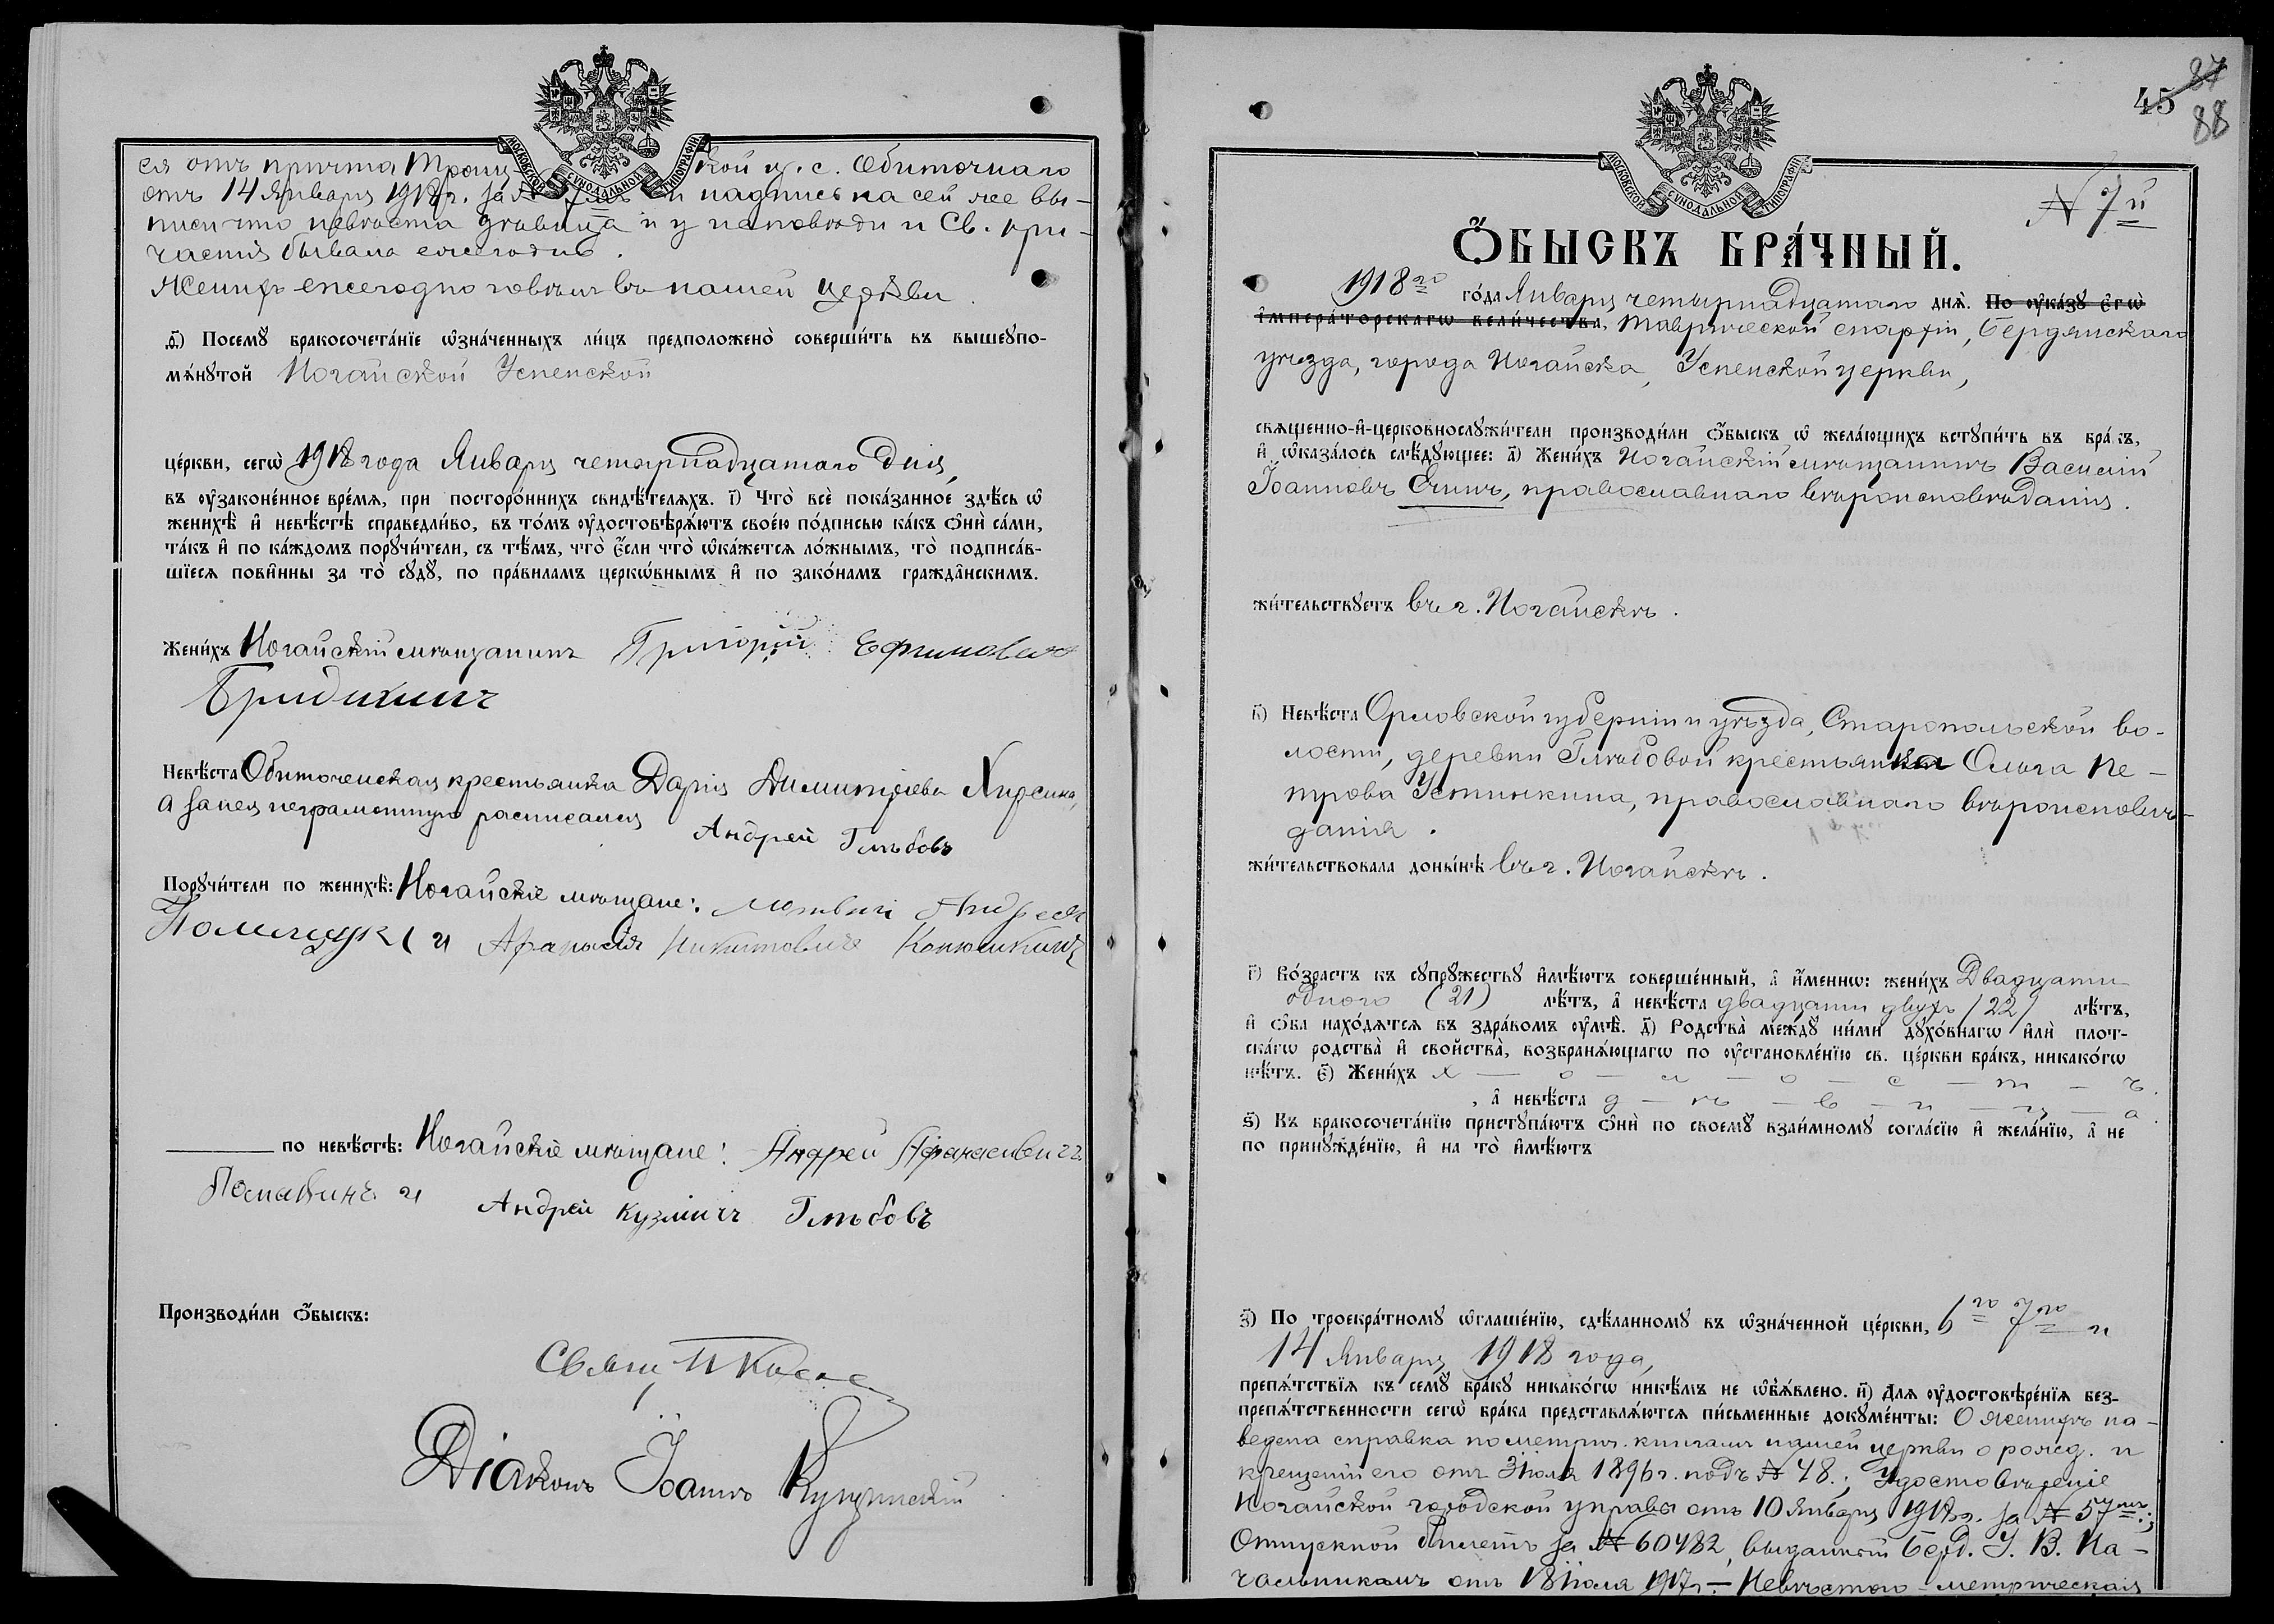 МОСКОВСКОЙ СѴНОДАЛЬНОЙ ТИПОГРАФІИ
ся отъ причта Троиц-кой ц. с. Обиточнаго
отъ 14 Января 1918 г. за № 7 и надпись на сей же вы-
писи что невѣста дѣвица и у исповѣди и Св. при-
частія бывала ежегодно.
Женихъ ежегодно говѣлъ въ нашей церкви.
ѳ҃) Посемꙋ̀ бракосочета́нїе ѡ҆зна́ченныхъ ли́цъ предположено̀ соверши́ть въ вышеꙋпо-
мѧ́нꙋтой Ногайской Успенской
це́ркви, сегѡ̀ 1918 года Января четырнадцатаго дня,
въ ᲂу҆законе́нное вре́мѧ, при посторо́ннихъ свидѣ́телѧхъ. і҃) Что̀ всѐ пока́занное здѣ́сь ѡ҆
женихѣ̀ и҆ невѣ́стѣ справедли́во, въ то́мъ ᲂу҆достовѣрѧ́ютъ свое́ю по́дписью ка́къ ѻ҆нѝ са́ми,
та́къ и҆ по ка́ждомъ порꙋчи́тели, съ тѣ́мъ, что̀ є҆́сли что̀ ѡ҆ка́жетсѧ ло́жнымъ, то̀ подписа́в-
шїесѧ пови́нны за то̀ сꙋдꙋ̀, по пра́виламъ церко́внымъ и҆ по зако́намъ гражда́нскимъ.
Жени́хъ Ногайскій мѣщанинъ Григорій Ефимовичъ
Бридихинъ
Невѣ́ста Обиточенская крестьянка Дарія Димитріева
а за нея неграмотную расписался Андрей Глѣбовъ
Порꙋчи́тели по женихѣ̀: Ногайскіе мѣщане: Андрей
и Афанасій Никитовичъ Конюшкинъ
по невѣ́стѣ: Ногайскіе мѣщане: Андрей Афанасьевичъ
и Андрей Кузмичъ Глѣбовъ
Производи́ли ѻ҆́быскъ:
Свящ.
Діаконъ Іоаннъ
87
45
88
МОСКОВСКОЙ СѴНОДАЛЬНОЙ ТИПОГРАФІИ
№ 7й
Ѻ҆́БЫСКЪ БРА́ЧНЫЙ.
1918го го́да Января четырнадцатаго днѧ̀. По ᲂу҆ка́зꙋ є҆гѡ̀
і҆мпера́торскагѡ вели́чества, Таврической епархіи, Бердянскаго
уѣзда, города Ногайска, Успенской церкви,
свѧщенно-и҆-церковнослꙋжи́тели производи́ли ѻ҆́быскъ ѡ҆ жела́ющихъ вступи́ть въ бра́къ,
и҆ ѡ҆каза́лось слѣ́дꙋющее: а҃) Жени́хъ Ногайскій мѣщанинъ Василій
Іоанновъ Ечинъ, православнаго вѣроисповѣданія.
жи́тельствꙋетъ въ г. Ногайскѣ.
в҃) Невѣ́ста Орловской губерніи и уѣзда, Старопольской во-
лости, деревни Глѣбовой крестьянка Ольга Пе-
трова Устинкина, православнаго вѣроисповѣ-
данія.
жи́тельствовала доны́нѣ въ г. Ногайскѣ.
г҃) Во́зрастъ къ сꙋпрꙋ́жествꙋ и҆мѣ́ютъ соверше́нный, а҆ и҆́меннѡ: жени́хъ Двадцати
одного (21) лѣ́тъ, а҆ невѣ́ста двадцати двухъ (22) лѣ́тъ,
и҆ ѻ҆́ба нахо́дѧтсѧ въ здра́вомъ ᲂу҆мѣ̀. д҃) Родства̀ междꙋ̀ ни́ми дꙋхо́внагѡ и҆лѝ плот-
ска́гѡ родства̀ и҆ сво́йства̀, возбранѧ́ющагѡ по ᲂу҆становле́нїю св. це́ркви бра́къ, никако́гѡ
нѣ́тъ. є҃) Жени́хъ х — о — л — о — с — т — ъ.
, а҆ невѣ́ста д — ѣ — в — и — ц — а.
ѕ҃) Къ бракосочета́нїю пристꙋпа́ютъ ѻ҆нѝ по своемꙋ̀ взаи́мномꙋ согла́сїю и҆ жела́нїю, а҆ не
по принꙋжде́нїю, и҆ на то̀ и҆мѣ́ютъ
з҃) По троекра́тномꙋ ѡ҆глаше́нїю, сдѣ́ланномꙋ въ ѡ҆зна́ченной це́ркви, 6го 7го и
14 Января 1918 года,
препѧ́тствїѧ къ семꙋ̀ бра́кꙋ никако́гѡ никѣ́мъ не ѡ҆б̾ѧ́влено. и҃) Длѧ ᲂу҆достовѣре́нїѧ без-
препѧ́тственности сегѡ̀ бра́ка представлѧ́ютсѧ пи́сьменные докꙋме́нты: О женихѣ на-
ведена справка по метрич. книгамъ нашей церкви о рожд. и
крещеніи его отъ 3 Іюля 1896 г. подъ № 48.; Удостовѣреніе
Ногайской городской управы отъ 10 Января 1918 г. за № 57мъ;
Отпускной билетъ за № 60482, выданный Берд. У. В. На-
чальникомъ отъ 18 Іюля 1917 г. — Невѣстою — метрическая